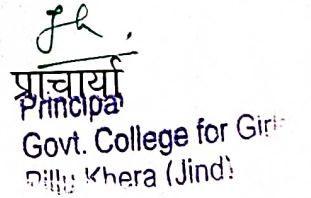 प्राचार्या
Principal
Govt. College for Girls
Pillu Khera (Jind)